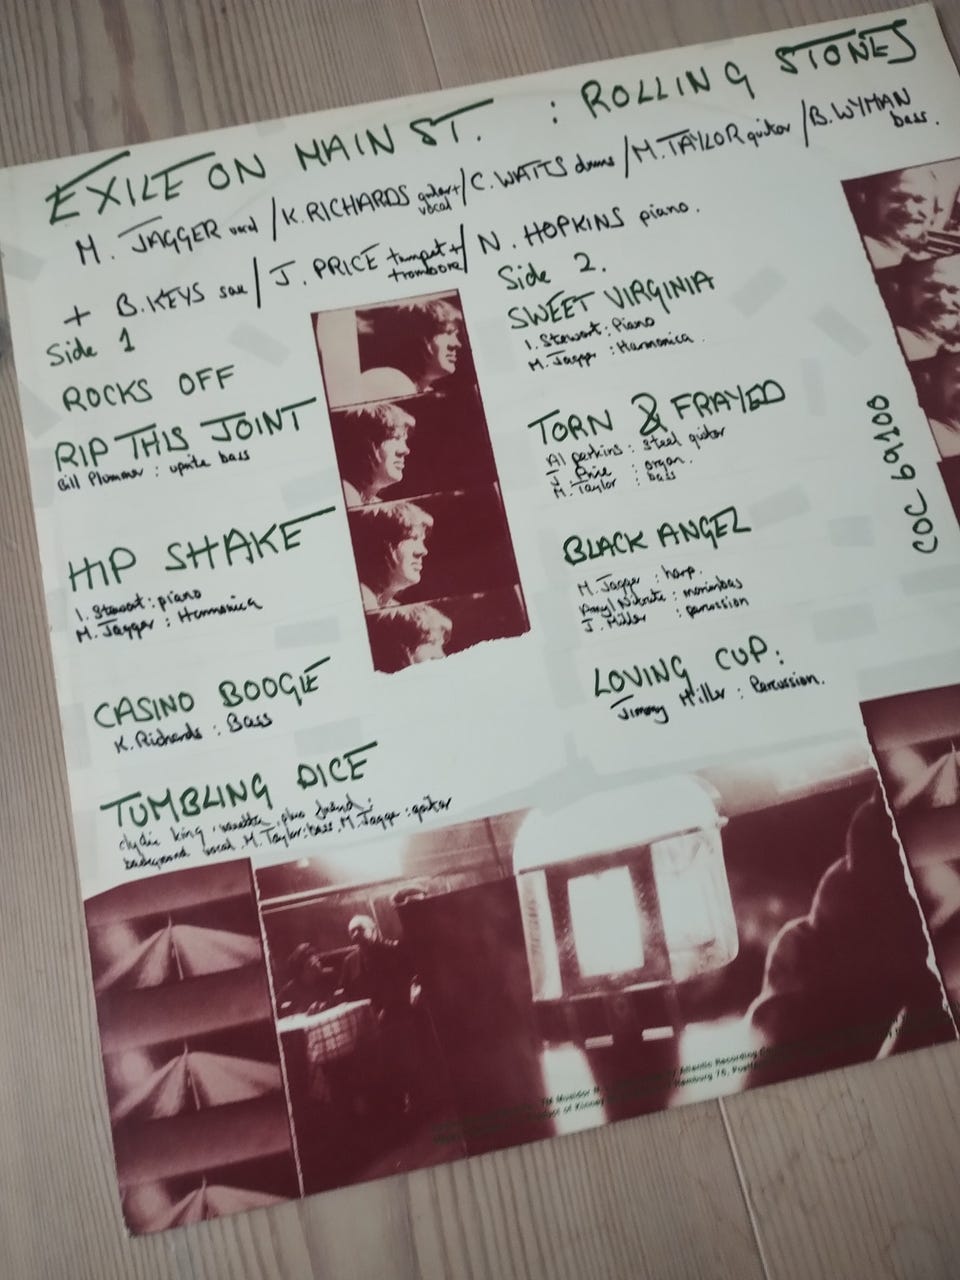 EXILE ON MAIN ST. : ROLLING STONES
M. JAGGER vocal / K. RICHARDS guitar + vocal / C. WATTS drums / M. TAYLOR guitar / B. WYMAN bass.
+ B. KEYS sax / J. PRICE trumpet + trombone / N. HOPKINS piano.
Side 1
ROCKS OFF
RIP THIS JOINT
Bill Plummer : uprite bass
HIP SHAKE
I. Stewart : piano
M. Jagger : Harmonica
CASINO BOOGIE
K. Richards : Bass
TUMBLING DICE
clydie king, vanetta, plus friend :
background vocal. M. Taylor : bass. M. Jagger : guitar
Side 2.
SWEET VIRGINIA
I. Stewart : Piano
M. Jagger : Harmonica.
TORN & FRAYED
Al perkins : steel guitar
J. Price : organ.
M. Taylor : bass
BLACK ANGEL
M. Jagger : harp.
Amyl Nitrate : marimbas
J. Miller : percussion
LOVING CUP :
Jimmy Miller : Percussion.
COC 69100
Atlantic Recording
of Kinney Hamburg 76,